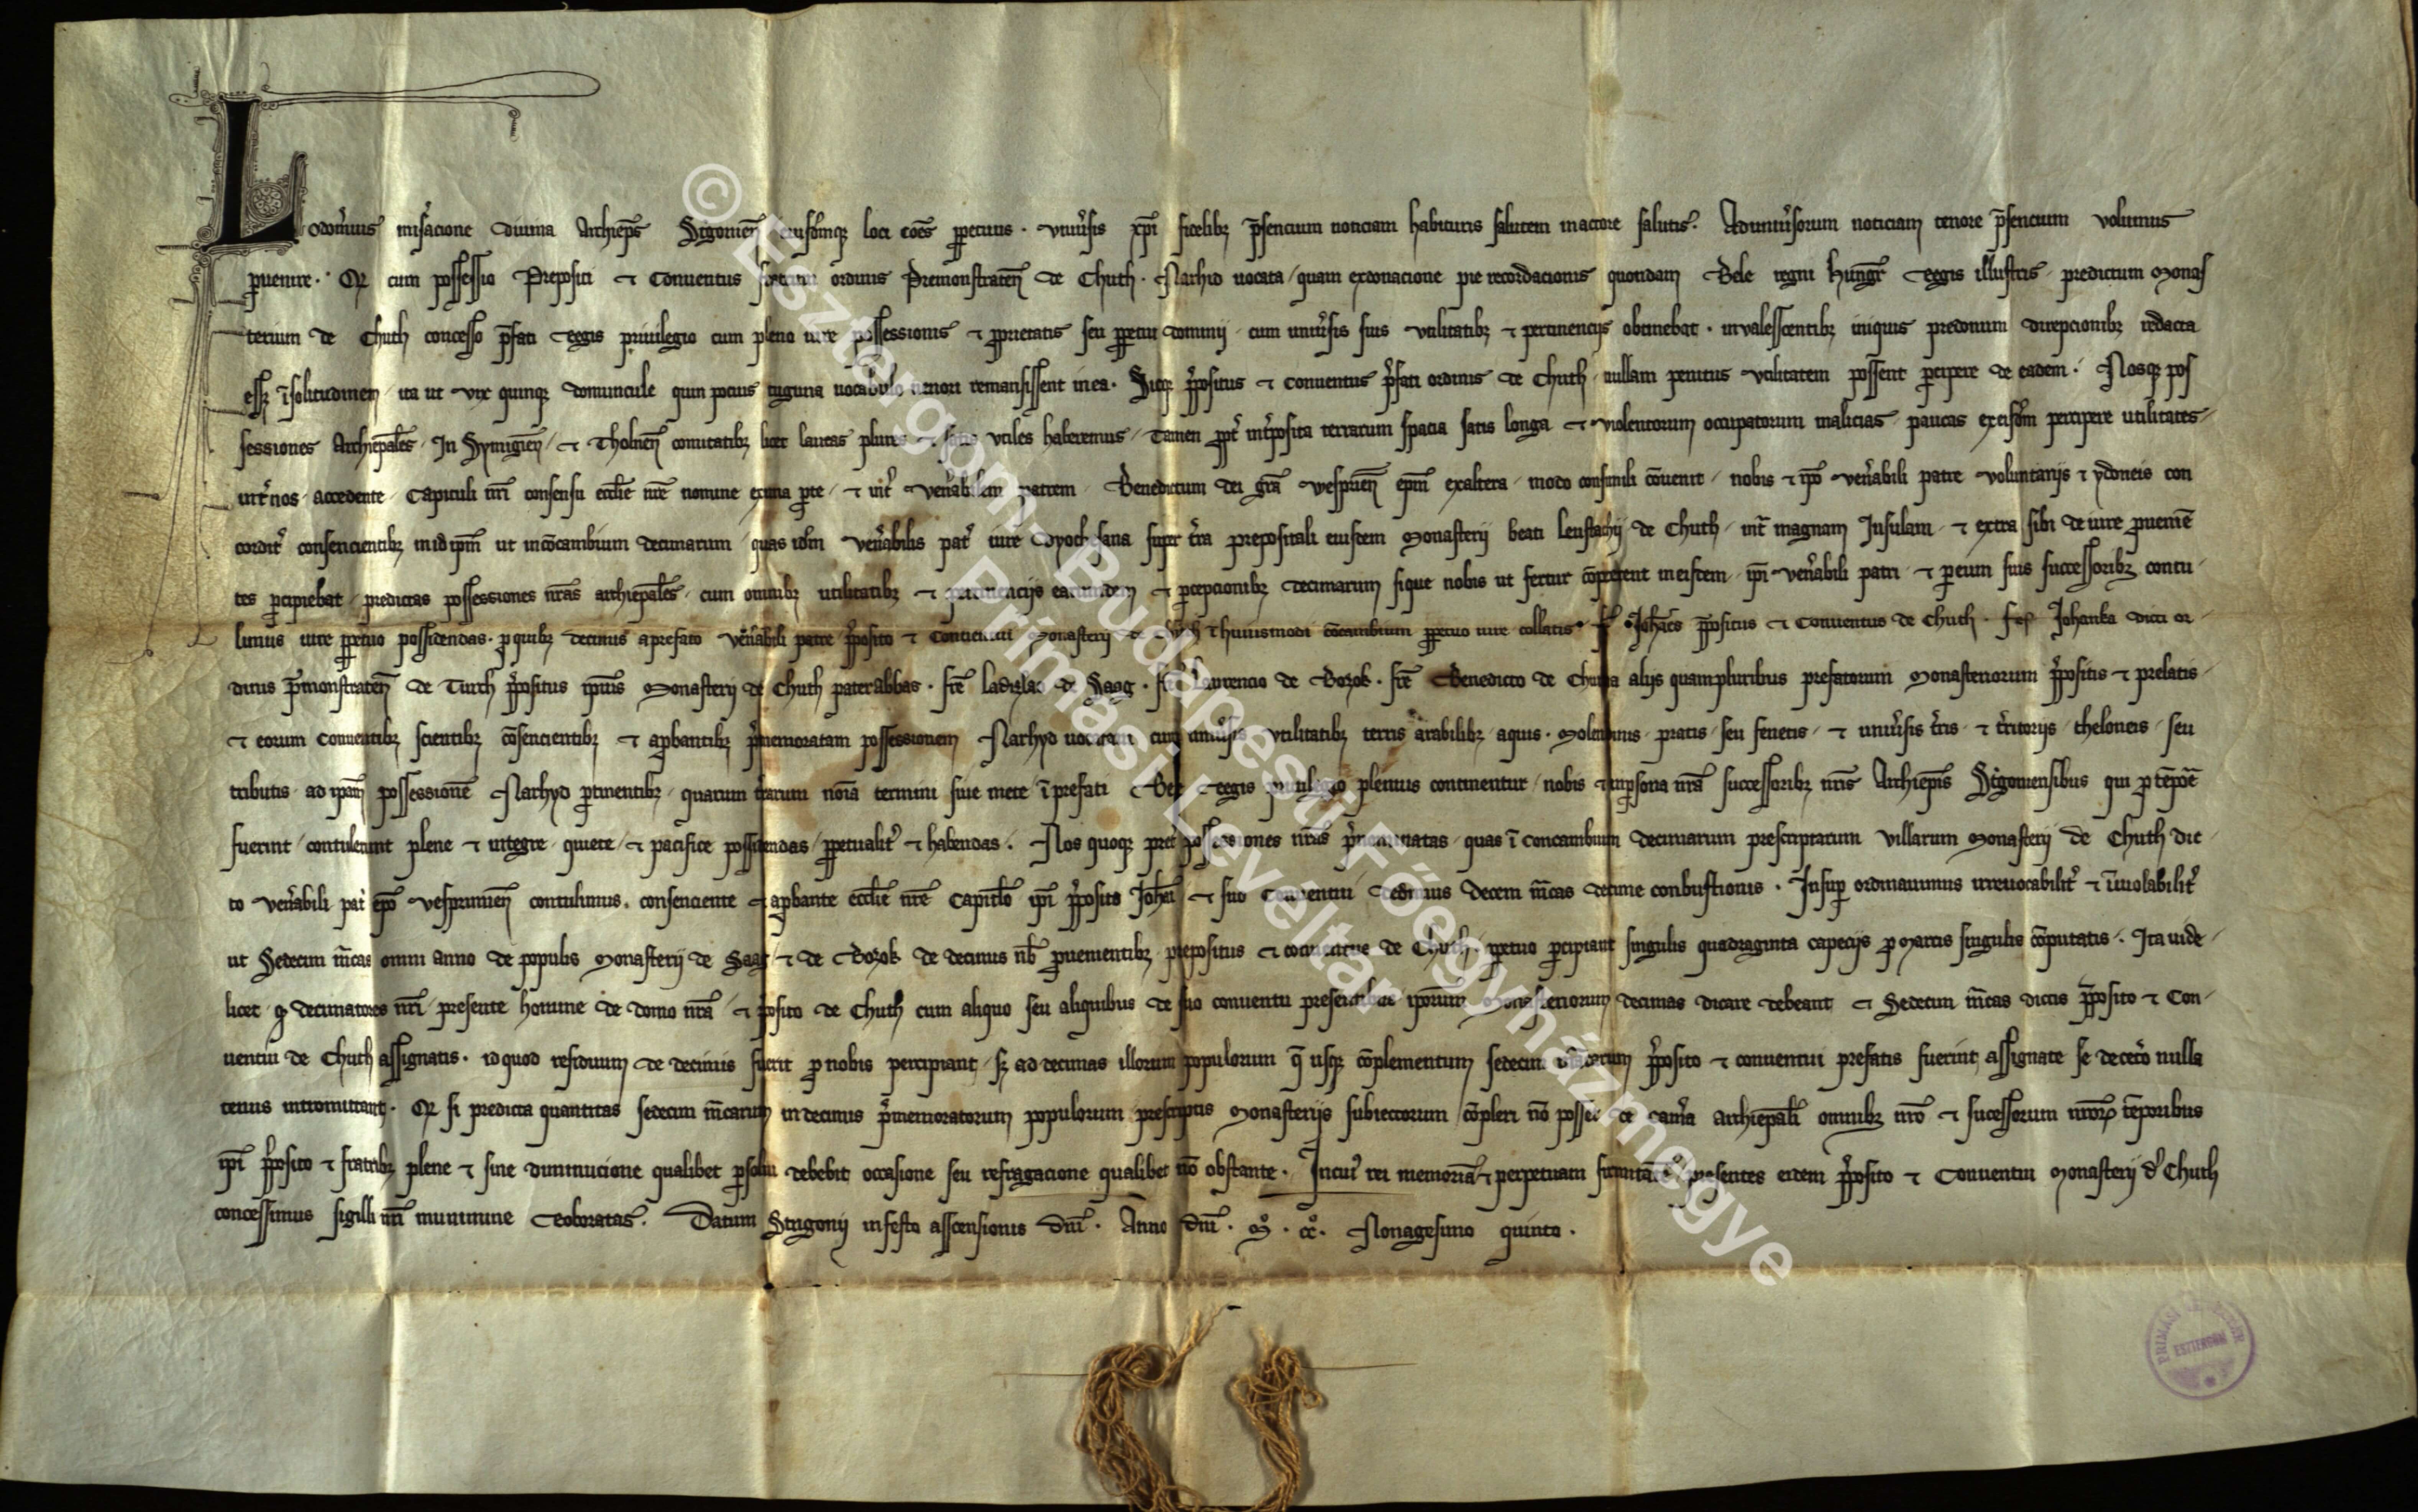 Lodom̃ius miẽacione diuina Archiep̃s Strigonieñ eiusdemq; loci com̃es ꝑpetuus. Vniũsis xp̃i fidelibꝫ p̃sencium noticiam habituris salutem in actore salutis. Ad uniũsorum noticiam tenore p̃sencium volumus
ꝑuenire. Q̃ cum possessio Prepositi et Conuentus fratrum ordinis Premonstrateñ de Chuth. Narhid uocata, quam ex donacione pie recordacionis quondam Bele regni Hungar̃ Regis illustris, predictum Monas
terium de Chuth concesso p̃fati Regis priuilegio cum pleno iure possessionis et ꝓprietatis seu ꝑpetui dominij cum uniũsis suis vtilitatibꝫ et pertinencijs obtinebat. inualesscentibꝫ iniquis predonum direpcionibꝫ redacta
esset ĩ solitudinem, ita ut vix quinqꝫ domuncule quin pocius tuguria uocabulo remansissent in ea. Sicqꝫ p̃positus et Conuentus p̃fati ordinis de Chuth, nullam penitus vtilitatem possent ꝑcipere de eadem. Nosqꝫ pos
sessiones Archiep̃ales, In Symigieñ, et Tholneñ comitatibꝫ licet lautas plures et satis vtiles haberemus, Tamen ꝓpt̃ int̃posita terrarum spacia satis longa et violentorum occupatorum malicias, paucas ex eisdem percipere utilitates,
int̃ nos, accedente, Capituli nr̃i consensu eccl̃ie nr̃e nomine ex una ꝑte, et int̃ veñabilem patrem, Benedictum dei gr̃a Wespr̃meñ ep̃m ex altera, modo consimili cõuenit, nobis et ip̃o veñabili patre voluntarijs et ydoneis con
cordit̃ consencientibꝫ in id ip̃m ut in cõcambium decimarum, quas idem veñabilis pat̃ iure dyochesana super t̃ra prepositali eiusdem Monasterij beati Leustachij de Chuth, int̃ magnam Insulam, et extra sibi de iure ꝓuenien̄
tes ꝑcipiebat, predictas possessiones nr̃as archiep̃ales, cum omnibꝫ utilitatibꝫ et pertinencijs earundem et ꝑcepcionibꝫ decimarum sique nobis ut fertur cõpetent in eisdem, ip̃i veñabili patri, et ꝑ eum suis successoribꝫ contu,
limus iure ꝑpetuo possidendas. ꝓ quibꝫ decimis a prefato veñabili patre p̃posito et Conuentui Monasterij de Chuth ĩ huiusmodi cõcambium ꝑpetuo iure collatis. Joh̃nes p̃positus et Conuentus de Chuth. Johanka dicti or,
dinis P̃monstrateñ de Turch p̃positus ip̃ius Monasterij de Chuth pater abbas. fr̃e Ladizlao de Saag. fr̃e Laurencio de Bozok. fr̃e Benedicto de alijs quampluribus prefatorum Monasteriorum p̃positis et prelatis,
et eorum Conuentibꝫ scientibꝫ cõsencientibꝫ et aꝓbantibꝫ p̃memoratam possessionem Narhyd uocatam cum uniũsis vtilitatibꝫ terris arabilibꝫ, aquis. Molendinis, pratis, seu fenetis, et uniũsis t̃ris, et t̃ritorijs, theloneis, seu
tributis, ad ip̃am possessionẽ Narhyd ꝑtinentibꝫ, quarum t̃rarum noĩa termini siue mete, ĩ prefati Bele Regis priuilegio plenius continentur, nobis et in ꝑsona nr̃a successoribꝫ nr̃is Archiep̃is Strigoniensibus qui ꝓ tẽpoẽ
fuerint, contulerunt plene et integre, quiete, et pacifice possidendas, ꝑpetualit̃ et habendas. Nos quoqꝫ possessiones nr̃as p̃nominatas, quas ĩ concambium decimarum prescriptarum villarum Monasterij de Chuth dic,
to veñabili pat̃ ep̃o Vesprimieñ contulimus, consenciente et aꝓbante eccl̃ie nr̃e Capitl̃o ip̃i p̃posito Joh̃i et suo Conuentui dedimus decem m̃cas decime conbustionis. Insuꝑ ordinauimus irreuocabilit̃ et ĩuiolabilit̃
ut Sedecim m̃cas omni anno de populis Monasterij de Saag et de Bozok de decimis nob̃ ꝓuenientibꝫ, prepositus et conuentus de Chuth, ꝑpetuo ꝑcipiant singulis quadraginta capecijs ꝓ Marcis singulis cõputatis. Ita vide,
licet, ꝙ decimatores nr̃i, presente homine de domo nr̃a, et p̃posito de Chuth cum aliquo seu aliquibus de suo conuentu presentibus ip̃orum Monasteriorum decimas dicare debeant, et Sedecim m̃cas dictis p̃posito et Con,
uentui de Chuth assignatis. id quod residuum de decimis fuerit ꝓ nobis percipiant, sꝫ ad decimas illorum populorum q̃ usqꝫ cõplementum sedecim marcarum p̃posito et conuentui prefatis fuerint assignate se de cet̃o nulla
tenus intromittant. Q̃ si predicta quantitas sedecim m̃carum in decimis p̃memoratorum populorum prescriptis Monasterijs subiectorum cõpleri nõ posset de cam̃a archiep̃ali omnibꝫ nr̃o et sucessorum nr̃orꝫ tẽporibus
ip̃i p̃posito et fratribꝫ plene et sine diminucione qualibet ꝑsolui debebit occasione seu refragacione qualibet nõ obstante. In cuĩ rei memoriã et perpetuam firmitatẽ presentes eidem p̃posito et Conuentui Monasterij d̃ Chuth
concessimus sigilli nr̃i munimine Roboratas. Datum Strigonij in festo asscensionis dñi. Anno dñi. Mº. CCº. Nonagesimo quinto.
© Esztergom-Budapesti Főegyházmegye
Prímási Levéltár
PRIMÁSI LEVÉLTÁR
ESZTERGOM